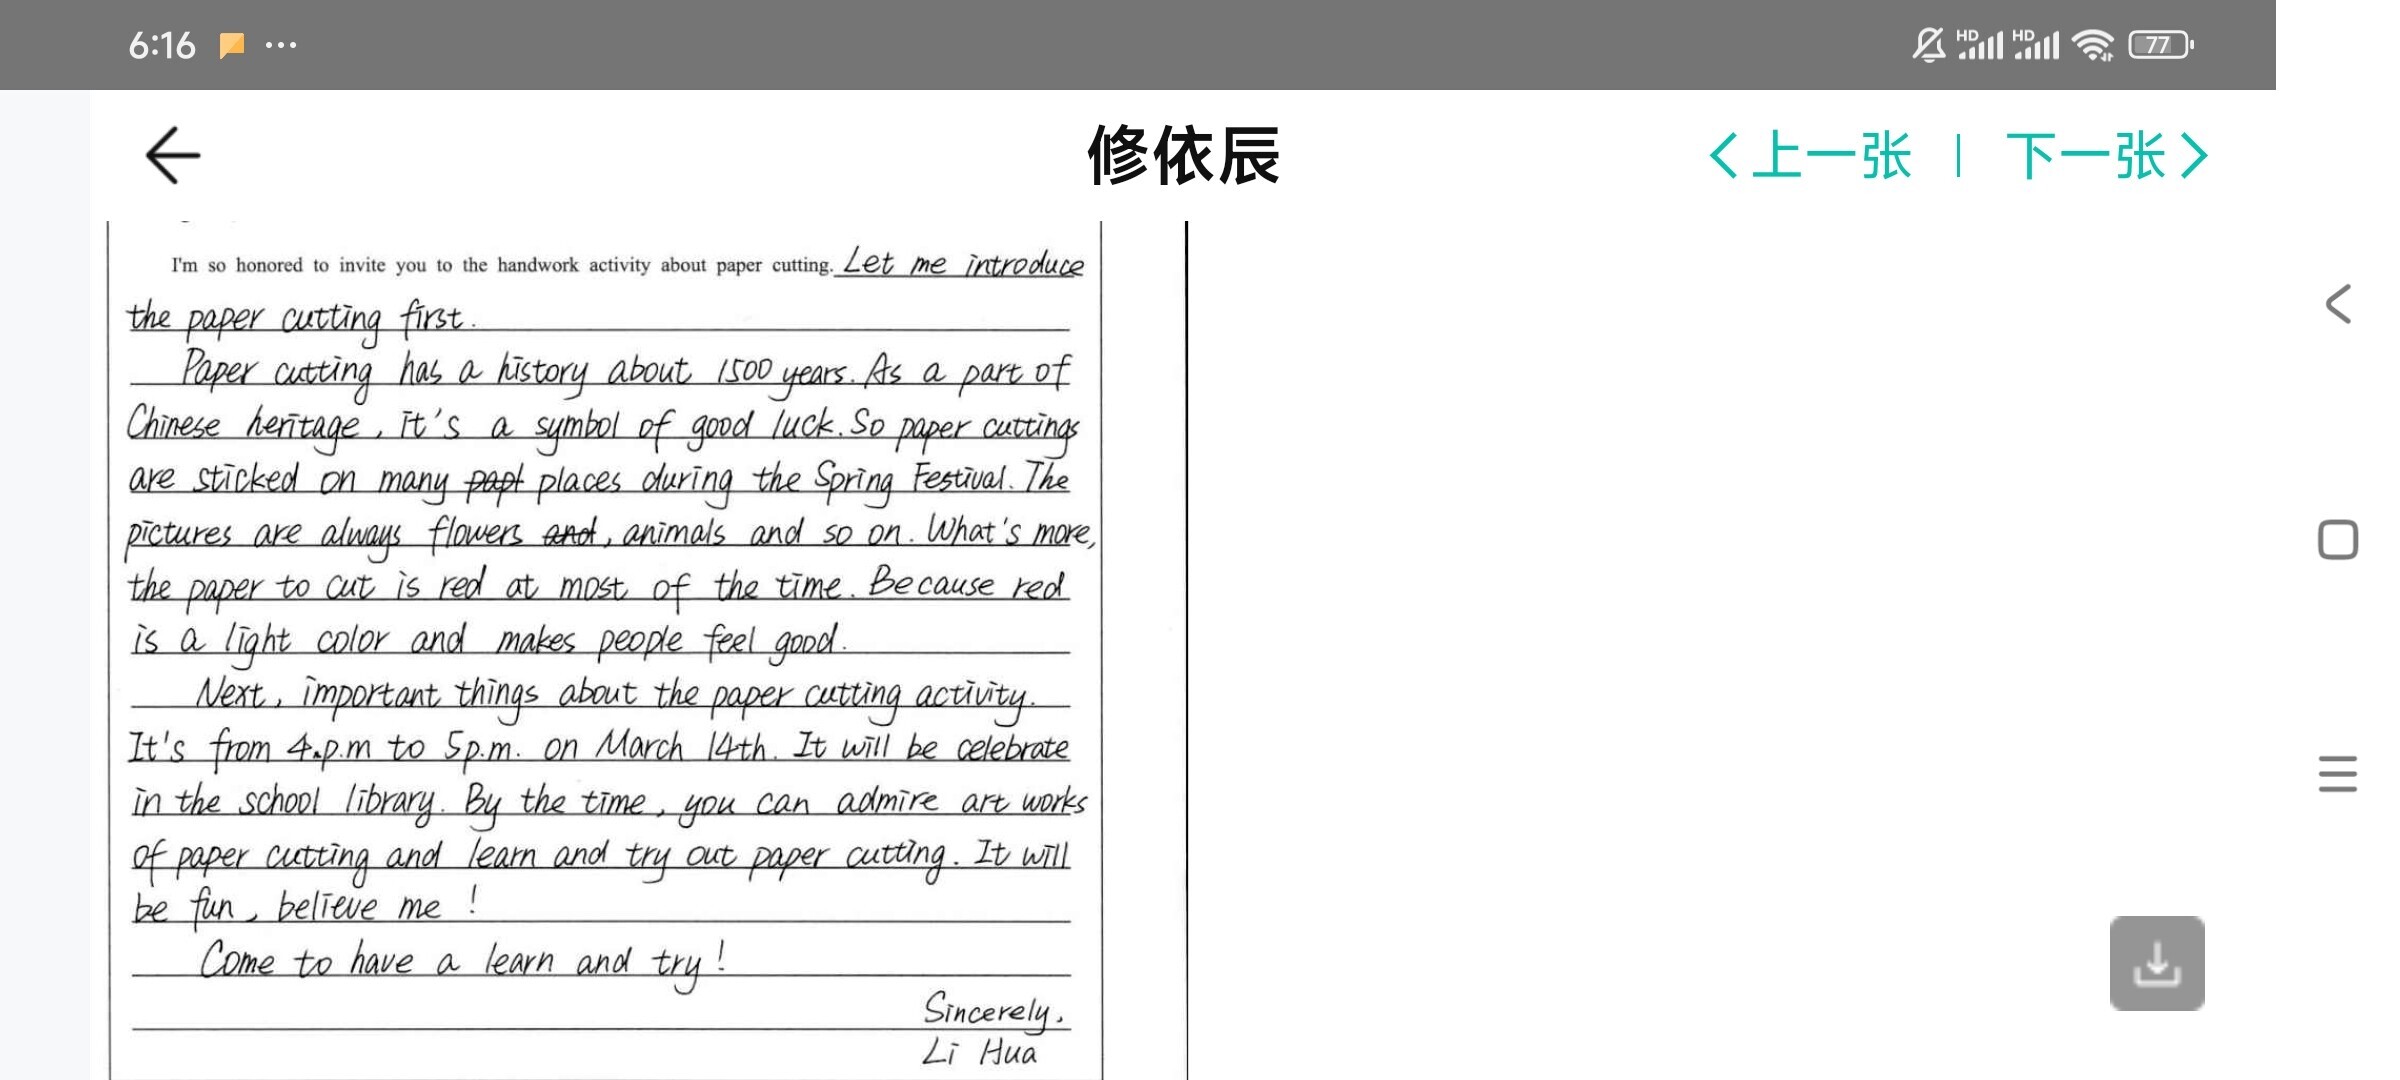 6:16 ... HD HD 77
修依辰
上一张 | 下一张
I'm so honored to invite you to the handwork activity about paper cutting. Let me introduce
the paper cutting first.
Paper cutting has a history about 1500 years. As a part of
Chinese heritage, it's a symbol of good luck. So paper cuttings
are sticked on many papt places during the Spring Festival. The
pictures are always flowers and, animals and so on. What's more,
the paper to cut is red at most of the time. Because red
is a light color and makes people feel good.
Next, important things about the paper cutting activity.
It's from 4.p.m to 5p.m. on March 14th. It will be celebrate
in the school library. By the time, you can admire art works
of paper cutting and learn and try out paper cutting. It will
be fun, believe me!
Come to have a learn and try!
Sincerely,
Li Hua